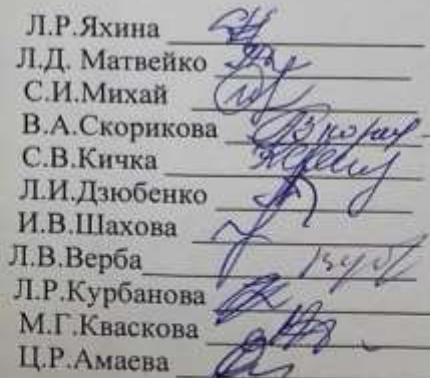 Л.Р.Яхина
Л.Д. Матвейко
С.И.Михай
В.А.Скорикова
С.В.Кичка
Л.И.Дзюбенко
И.В.Шахова
Л.В.Верба
Л.Р.Курбанова
М.Г.Кваскова
Ц.Р.Амаева